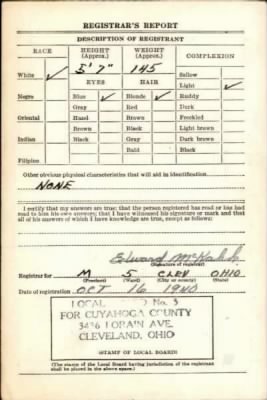 REGISTRAR'S REPORT
DESCRIPTION OF REGISTRANT
RACE HEIGHT (Approx.) WEIGHT (Approx.) COMPLEXION
5' 7" 145
White ✓ Sallow
EYES HAIR Light ✓
Negro Blue ✓ Blonde ✓ Ruddy
Gray Red Dark
Oriental Hazel Brown Freckled
Brown Black Light brown
Indian Black Gray Dark brown
Bald Black
Filipino
Other obvious physical characteristics that will aid in identification
NONE
I certify that my answers are true; that the person registered has read or has had
read to him his own answers; that I have witnessed his signature or mark and that
all of his answers of which I have knowledge are true, except as follows:
Edward
(Signature of registrar)
Registrar for M 5 CLEV OHIO
(Precinct) (Ward) (City or county) (State)
Date of registration OCT 16 1940
LOCAL NO. 3
FOR CUYAHOGA COUNTY
3496 LORAIN AVE.
CLEVELAND, OHIO
(STAMP OF LOCAL BOARD)
(The stamp of the Local Board having jurisdiction of the registrant
shall be placed in the above space.)